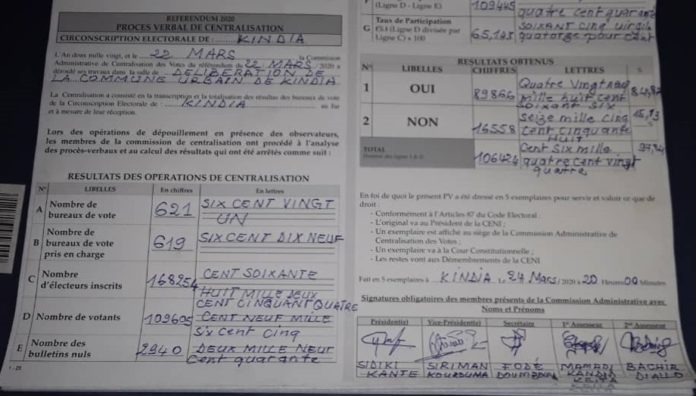 REFERENDUM 2020
PROCES VERBAL DE CENTRALISATION
CIRCONSCRIPTION ELECTORALE DE : KINDIA
L'An deux mille vingt, et le 22 MARS la Commission
Administrative de Centralisation des Votes du référendum du 22 MARS 2020 a
déroulé ses travaux dans la salle de DELIBERATION DE
LA COMMUNE URBAIN DE KINDIA
La Centralisation a consisté en la transcription et la totalisation des résultats des bureaux de vote
de la Circonscription Electorale de : KINDIA au fur
et à mesure de leur réception.
Lors des opérations de dépouillement en présence des observateurs,
les membres de la commission de centralisation ont procédé à l'analyse
des procès-verbaux et au calcul des résultats qui ont été arrêtés comme suit :
RESULTATS DES OPERATIONS DE CENTRALISATION
N° LIBELLES En chiffres En lettres
A Nombre de bureaux de vote 621 SIX CENT VINGT UN
B Nombre de bureaux de vote pris en charge 619 SIX CENT DIX NEUF
C Nombre d'électeurs inscrits 168254 CENT SOIXANTE HUIT MILLE DEUX CENT CINQUANT QUATRE
D Nombre de votants 109605 CENT NEUF MILLE SIX CENT CINQ
E Nombre des bulletins nuls 2940 DEUX MILLE NEUF Cent quarante
(Ligne D - Ligne E) 109445 quatre cent quarante
G Taux de Participation
(Ligne D divisée par
Ligne C) x 100 65,145 SOIXANT CINQ virgile
quatorze pour cent
RESULTATS OBTENUS
N° LIBELLES CHIFFRES LETTRES
1 OUI 89866 Quatre Vingt neuf mille huit cent soixant six
2 NON 16558 Seize mille cinq cent cinquante HUIT
TOTAL 106424 Cent Six mille quatre cent vingt quatre
En foi de quoi le présent PV a été dressé en 5 exemplaires pour servir et valoir ce que de
droit :
- Conformément à l'Articles 87 du Code Electoral :
- L'original va au Président de la CENI ;
- Un exemplaire est affiché au siège de la Commission Administrative de
Centralisation des Votes ;
- Un exemplaire va à la Cour Constitutionnelle ;
- Les restes vont aux Démembrements de la CENI
Fait en 5 exemplaires à KINDIA, 24 Mars / 2020 à 20 Heures 00 Minutes
Signatures obligatoires des membres présents de la Commission Administrative avec
Noms et Prénoms
Président(e) Vice-Président(e) Secrétaire 1er Assesseur 2ème Assesseur
SIDIKI KANTE
SIRIMAN KOUROUMA
FODÉ DOUMBOUYA
MAMADI KANDIA KEITA
BACHIR DIALLO